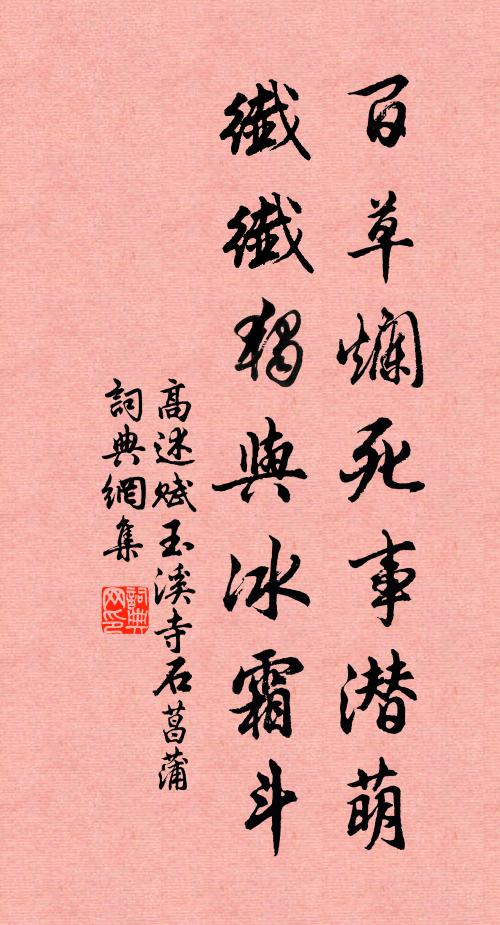 百草爛死事潜萌
纖纖獨與冰霜斗
高述赋玉溪寺石菖蒲
詞典網集
詞典网印